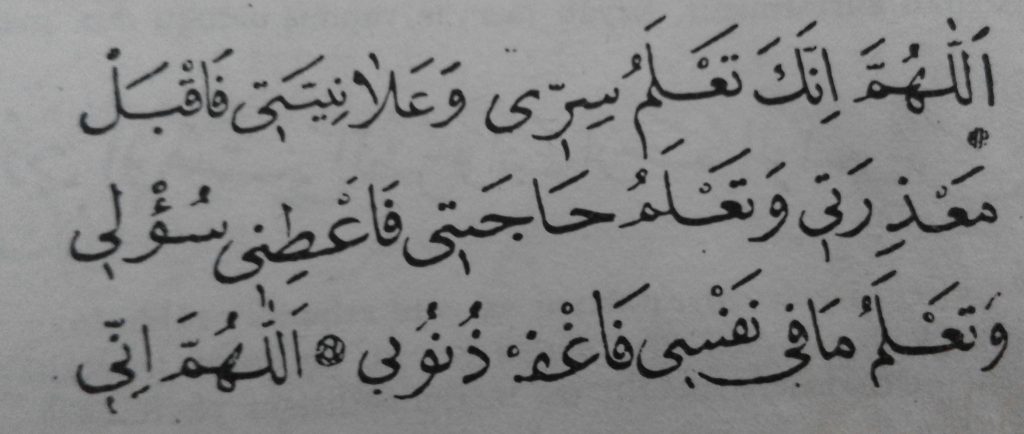 اَللّٰهُمَّ اِنَّكَ تَعْلَمُ سِرِّى وَعَلَانِيَتِى فَاقْبَلْ
مَعْذِرَتِي وَتَعْلَمُ حَاجَتِى فَاَعْطِنِى سُؤْلِي
وَتَعْلَمُ مَافِي نَفْسِي فَاغْفِرْ ذُنُوْبِي ۞ اَللّٰهُمَّ اِنِّي